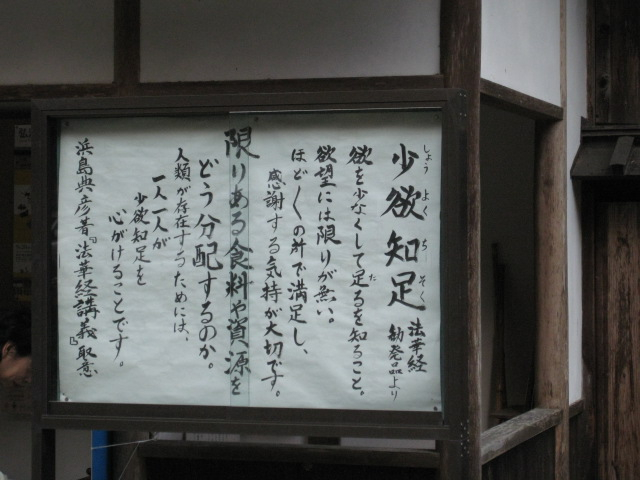 少欲知足
しょう よく ち そく
法華経
勧発品より
欲を少なくして足るを知ること。
た
欲望には限りが無い。
ほど〱の所で満足し、
感謝する気持が大切です。
限りある食料や資源を
どう分配するのか。
人類が存在するためには、
一人一人が
少欲知足を
心がけることです。
浜島典彦著『法華経講義』取意